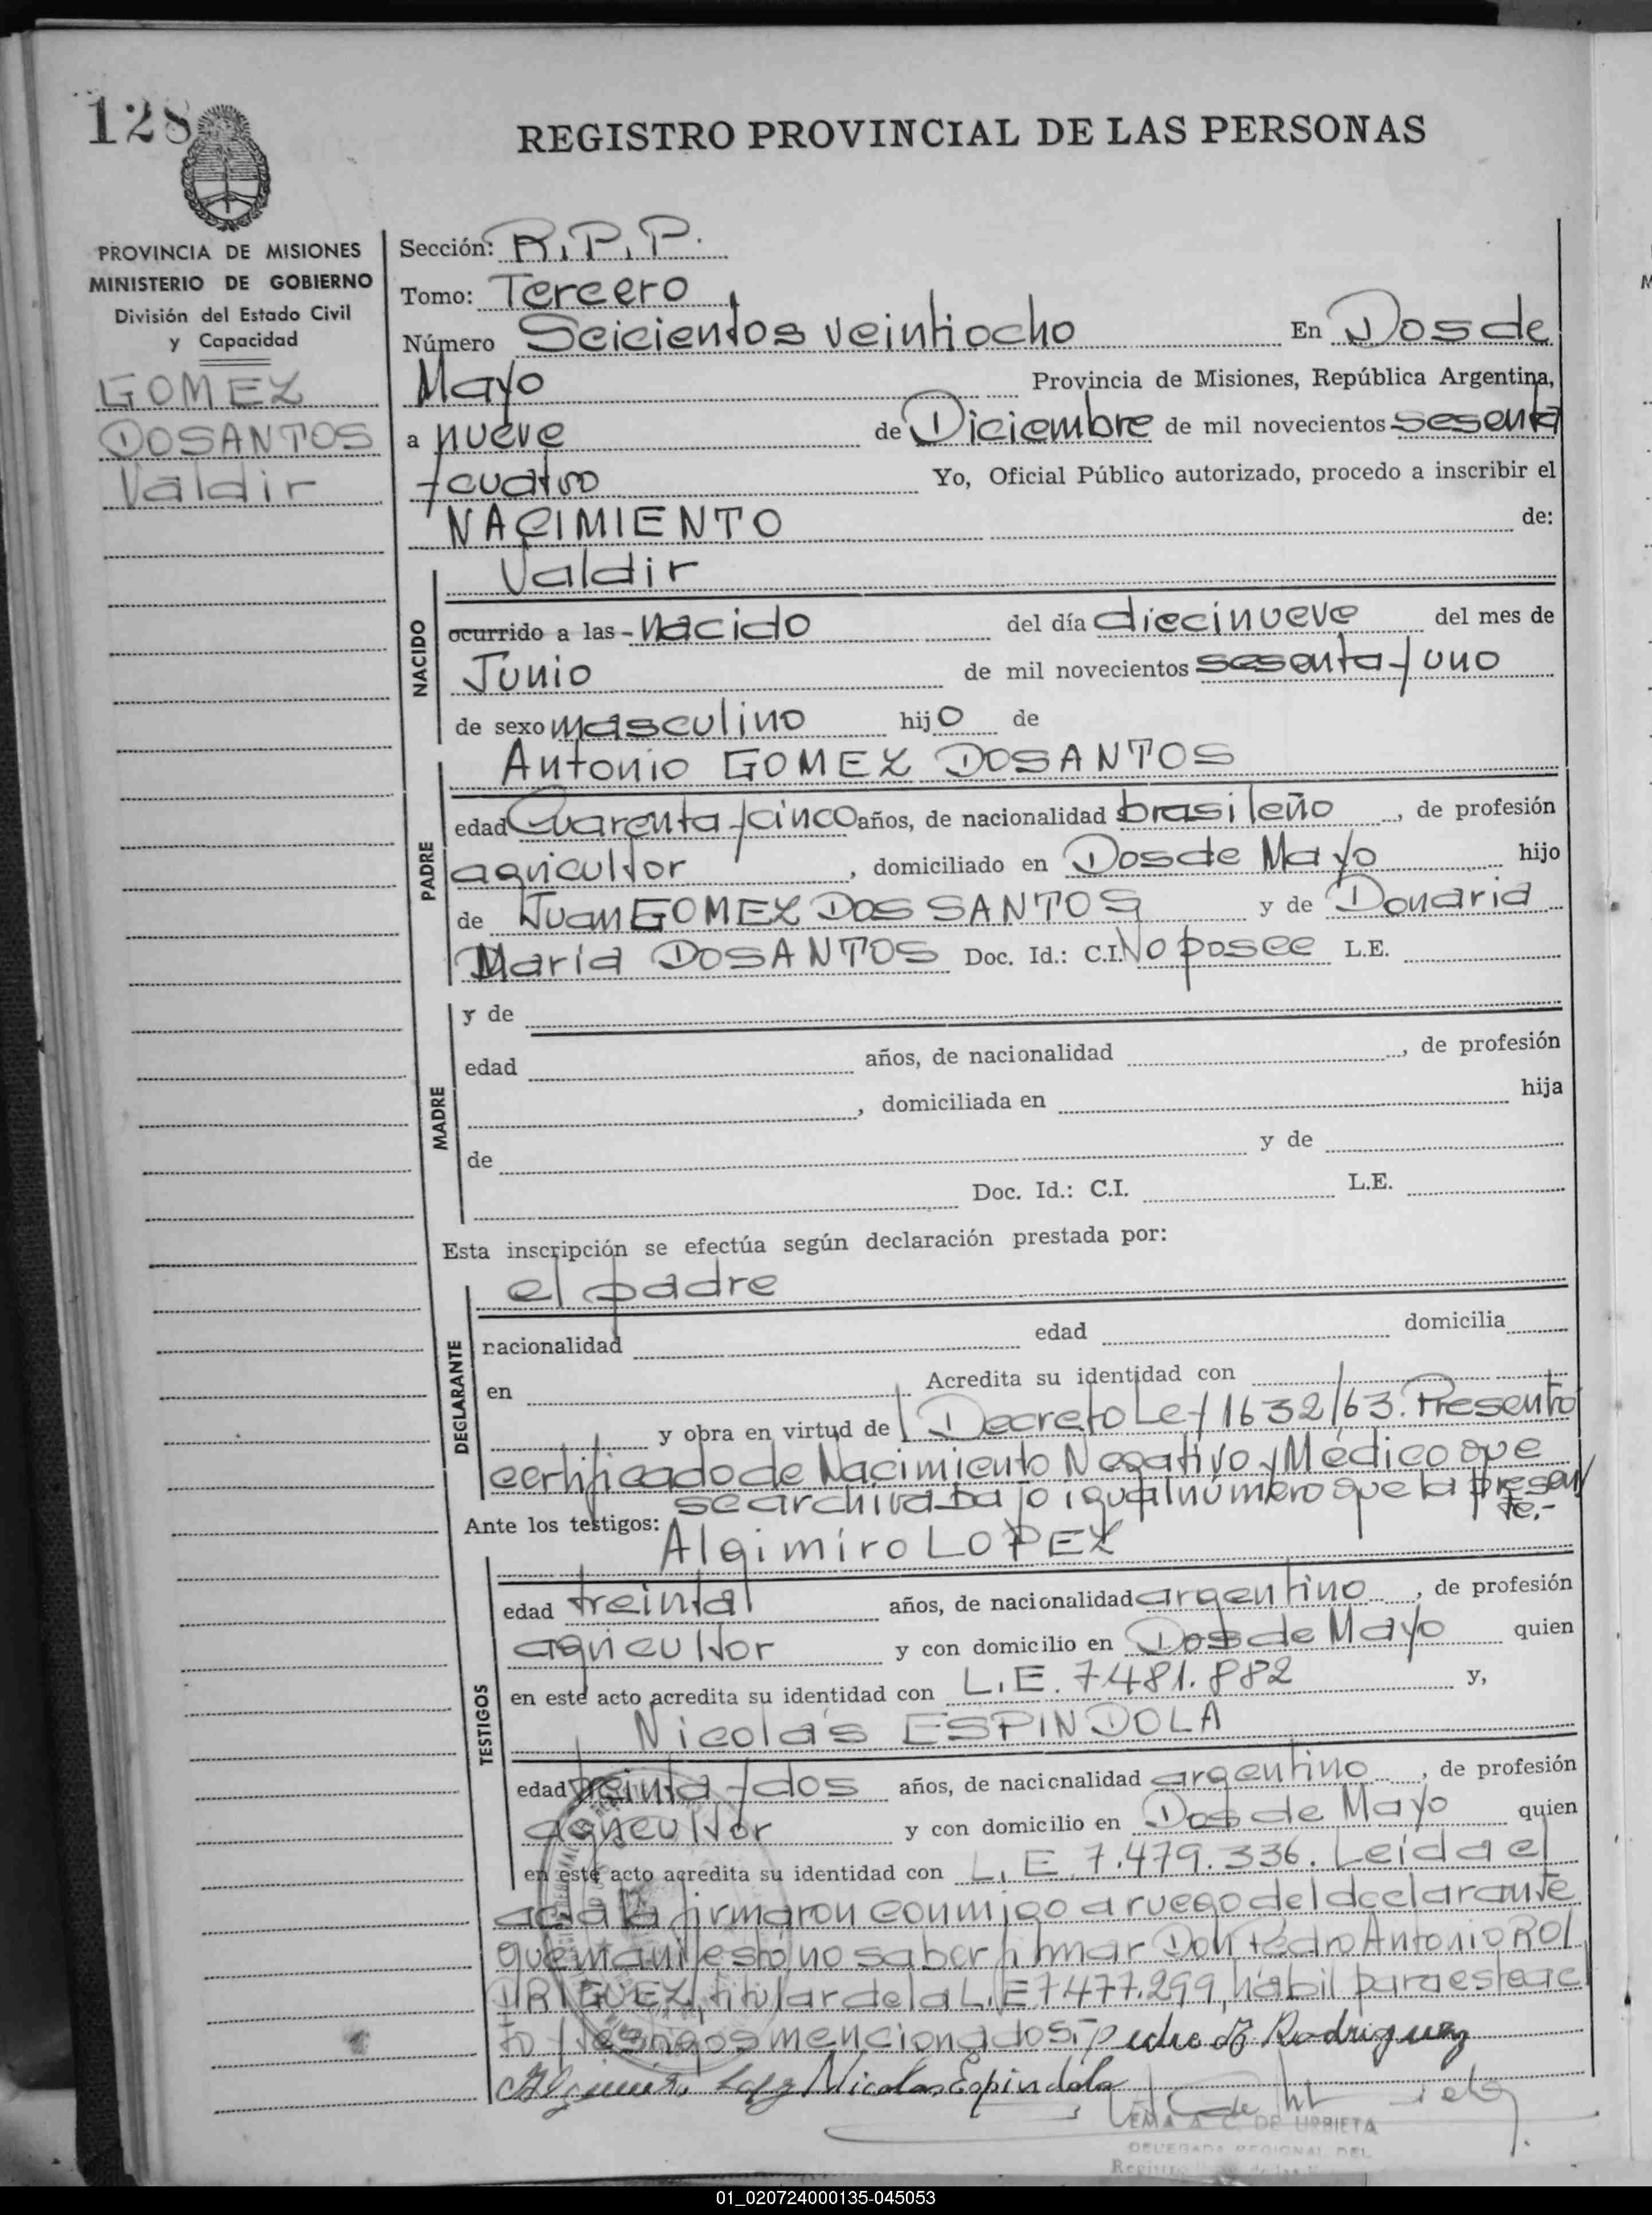 128
REGISTRO PROVINCIAL DE LAS PERSONAS
PROVINCIA DE MISIONES
MINISTERIO DE GOBIERNO
División del Estado Civil
y Capacidad
GOMEZ
DOSANTOS
Valdir
Sección: R.P.P.
Tomo: Tercero
Número Seicientos veintiocho En Dos de
Mayo Provincia de Misiones, República Argentina,
a nueve de Diciembre de mil novecientos sesenta
y cuatro Yo, Oficial Público autorizado, procedo a inscribir el
NACIMIENTO de:
NACIDO
Valdir
ocurrido a las - nacido del día diecinueve del mes de
Junio de mil novecientos sesenta y uno
de sexo masculino hijo de
PADRE
Antonio GOMEZ DOSANTOS
edad Cuarenta y cinco años, de nacionalidad brasileño, de profesión
agricultor, domiciliado en Dos de Mayo hijo
de Juan GOMEZ DOS SANTOS y de Donaria
María DOSANTOS Doc. Id.: C.I. No posee L.E.
MADRE
y de
edad años, de nacionalidad , de profesión
, domiciliada en hija
de y de
Doc. Id.: C.I. L.E.
Esta inscripción se efectúa según declaración prestada por:
DECLARANTE
el padre
nacionalidad edad domicilia
en Acredita su identidad con
y obra en virtud de l Decreto Ley 1632/63. Presentó
certificado de Nacimiento Negativo y Médico que
se archiva bajo igual número que la presen
te.-
Ante los testigos:
TESTIGOS
Algimiro LOPEZ
edad treinta años, de nacionalidad argentino, de profesión
agricultor y con domicilio en Dos de Mayo quien
en este acto acredita su identidad con L.E. 7.481.882 y,
Nicolás ESPINDOLA
edad treinta y dos años, de nacionalidad argentino, de profesión
agricultor y con domicilio en Dos de Mayo quien
en este acto acredita su identidad con L.E. 7.479.336. Leída el
acta la firmaron conmigo a ruego del declarante
que manifestó no saber firmar Don Pedro Antonio RO
DRIGUEZ, titular de la L.E 7.477.299, hábil para este ac
to y testigos mencionados.- Pedro A Rodriguez
Algimiro Lopez Nicolas Espindola
EMA A. C. DE URBIETA
DELEGADA REGIONAL DEL
Registro
01_020724000135-045053